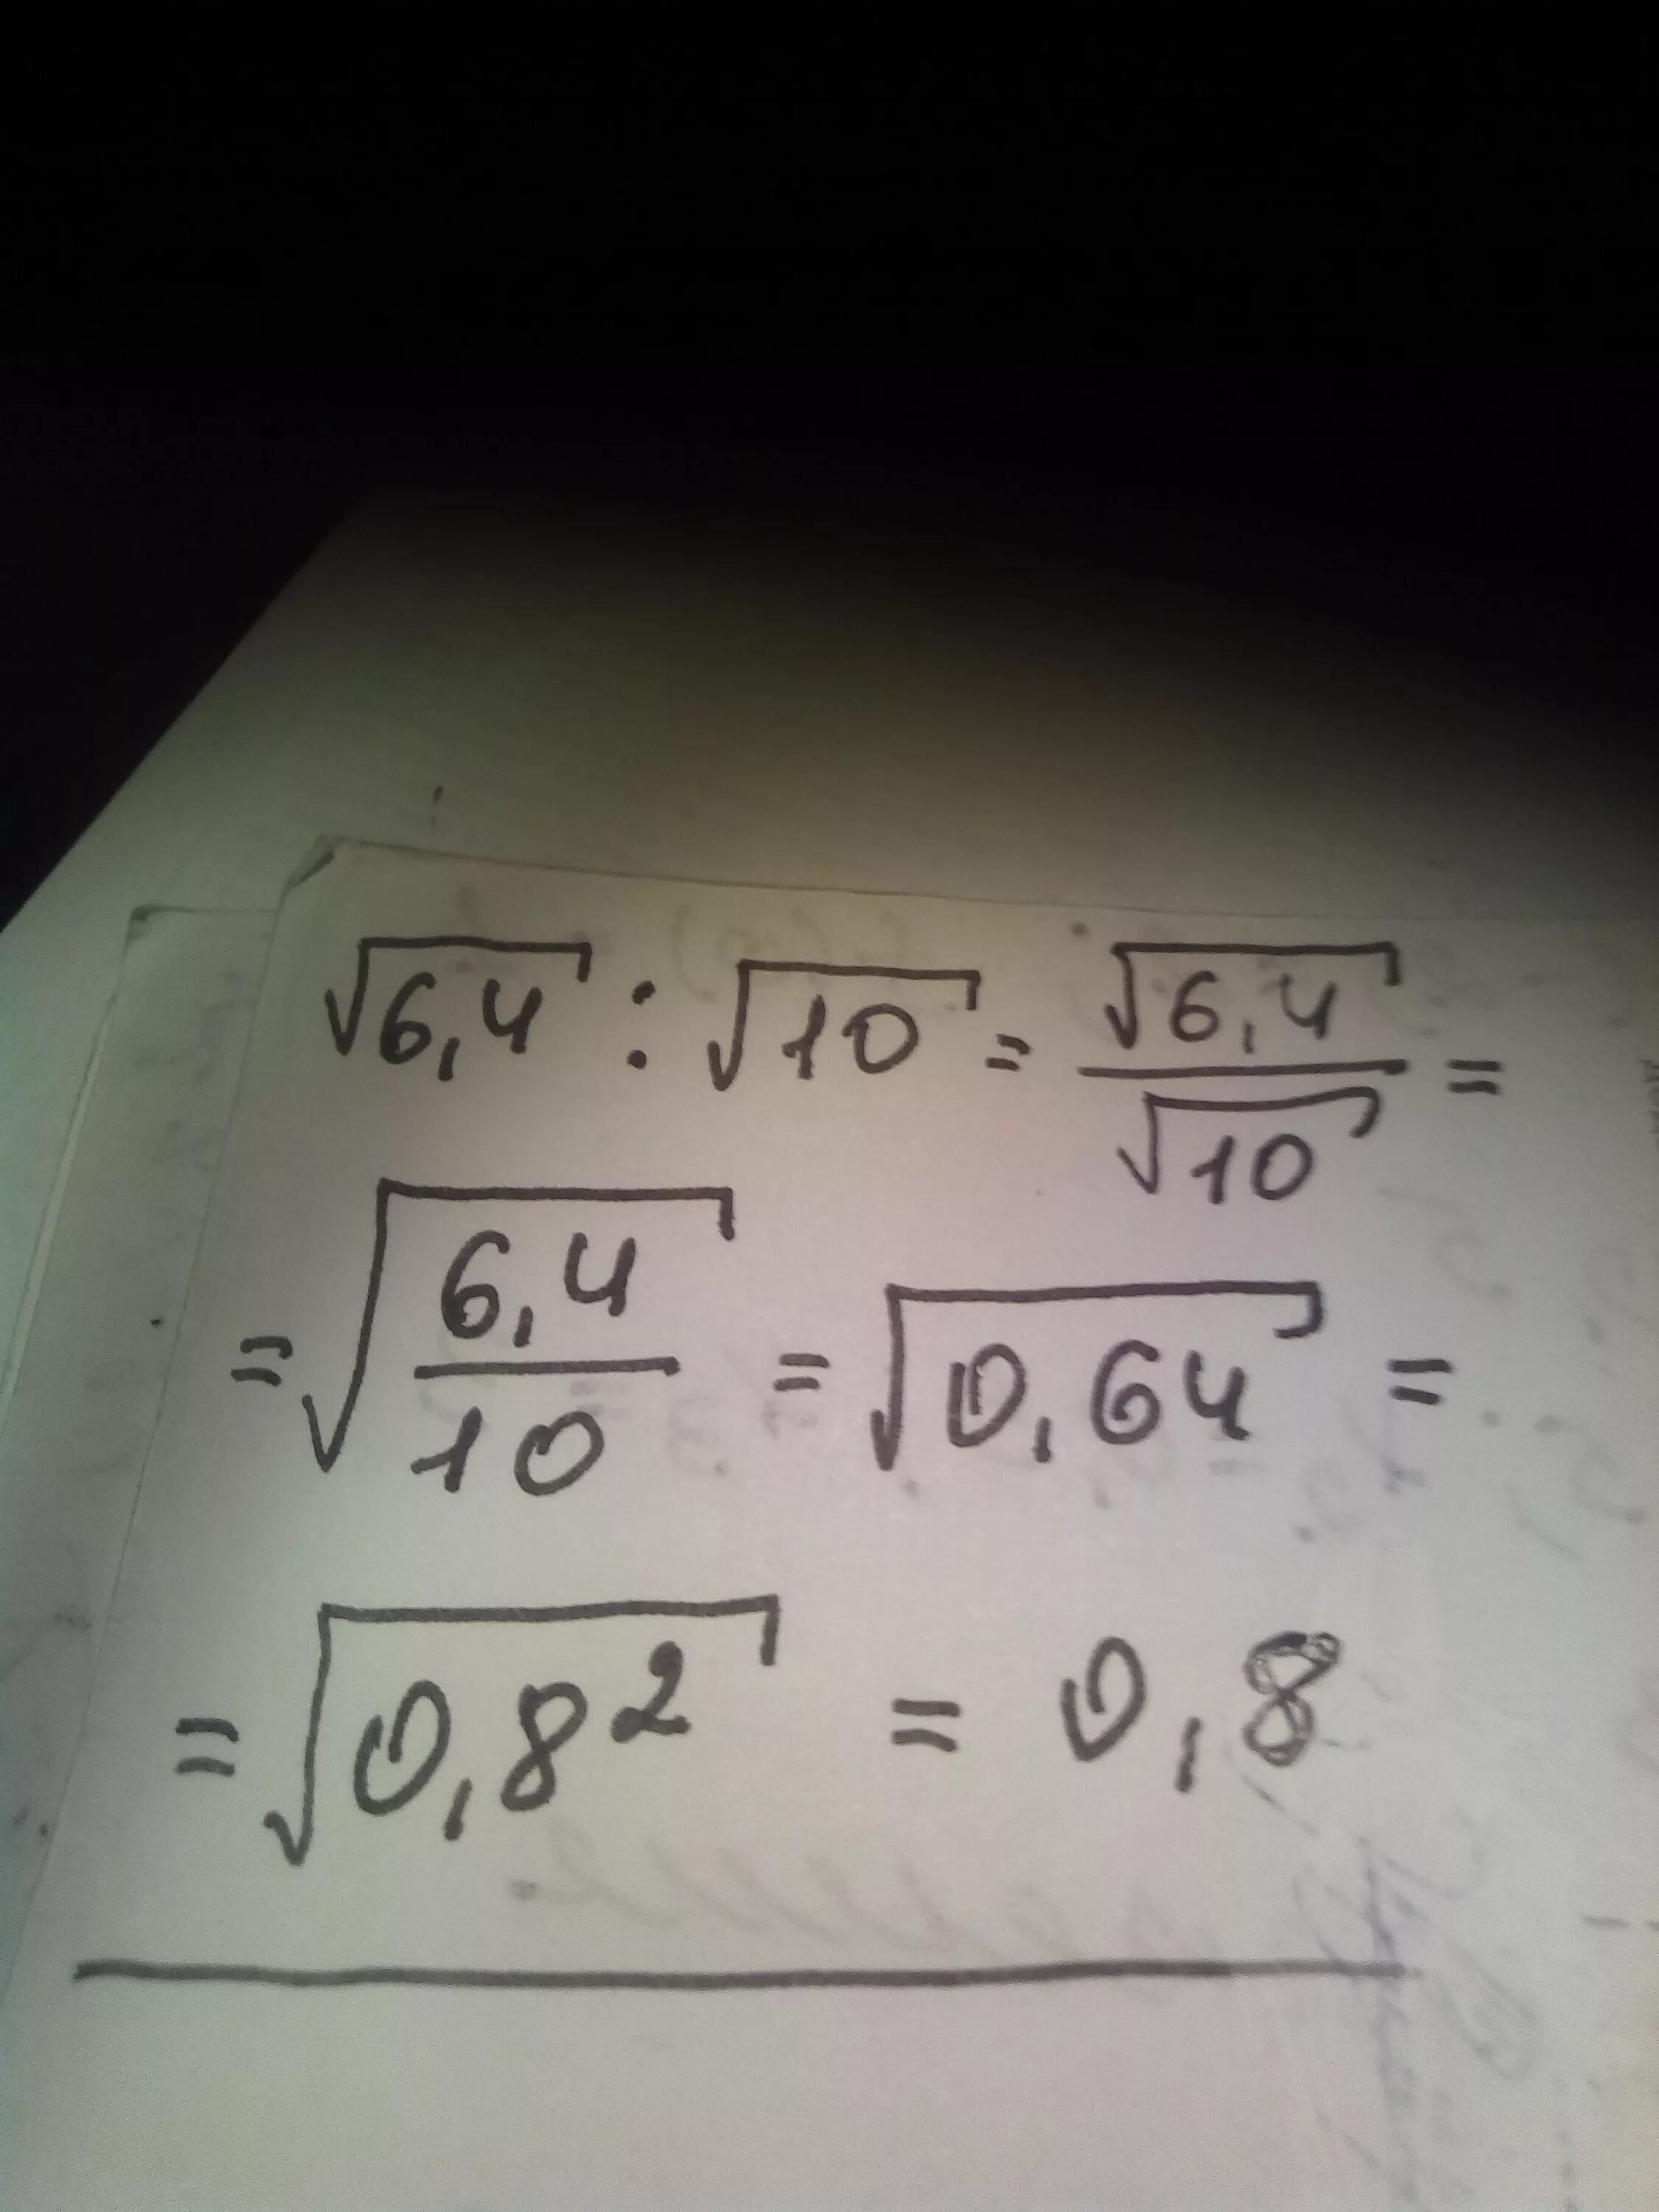 √6,4 : √10 = √6,4/√10 =
= √(6,4/10) = √0,64 =
= √0,8² = 0,8